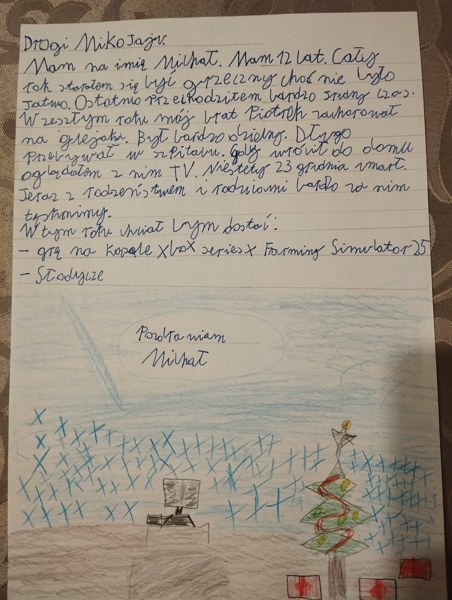 Drogi Mikołaju.
Mam na imię Michał. Mam 12 lat. Cały
rok starałem się być grzeczny choć nie było
łatwo. Ostatnio przechodziłem bardzo trudny czas.
W zeszłym roku mój brat Piotrek zachorował
na glejaka. Był bardzo dzielny. Długo
przebywał w szpitalu. gdy wrócił do domu
oglądałem z nim TV. Niestety 23 grudnia zmarł.
Teraz z rodzeństwem i rodzicami bardzo za nim
tęsknimy.
W tym roku chciał bym dostać:
- grę na konsole xbox series x Farming Simulator 25
- Słodycze
Pozdrawiam
Michał